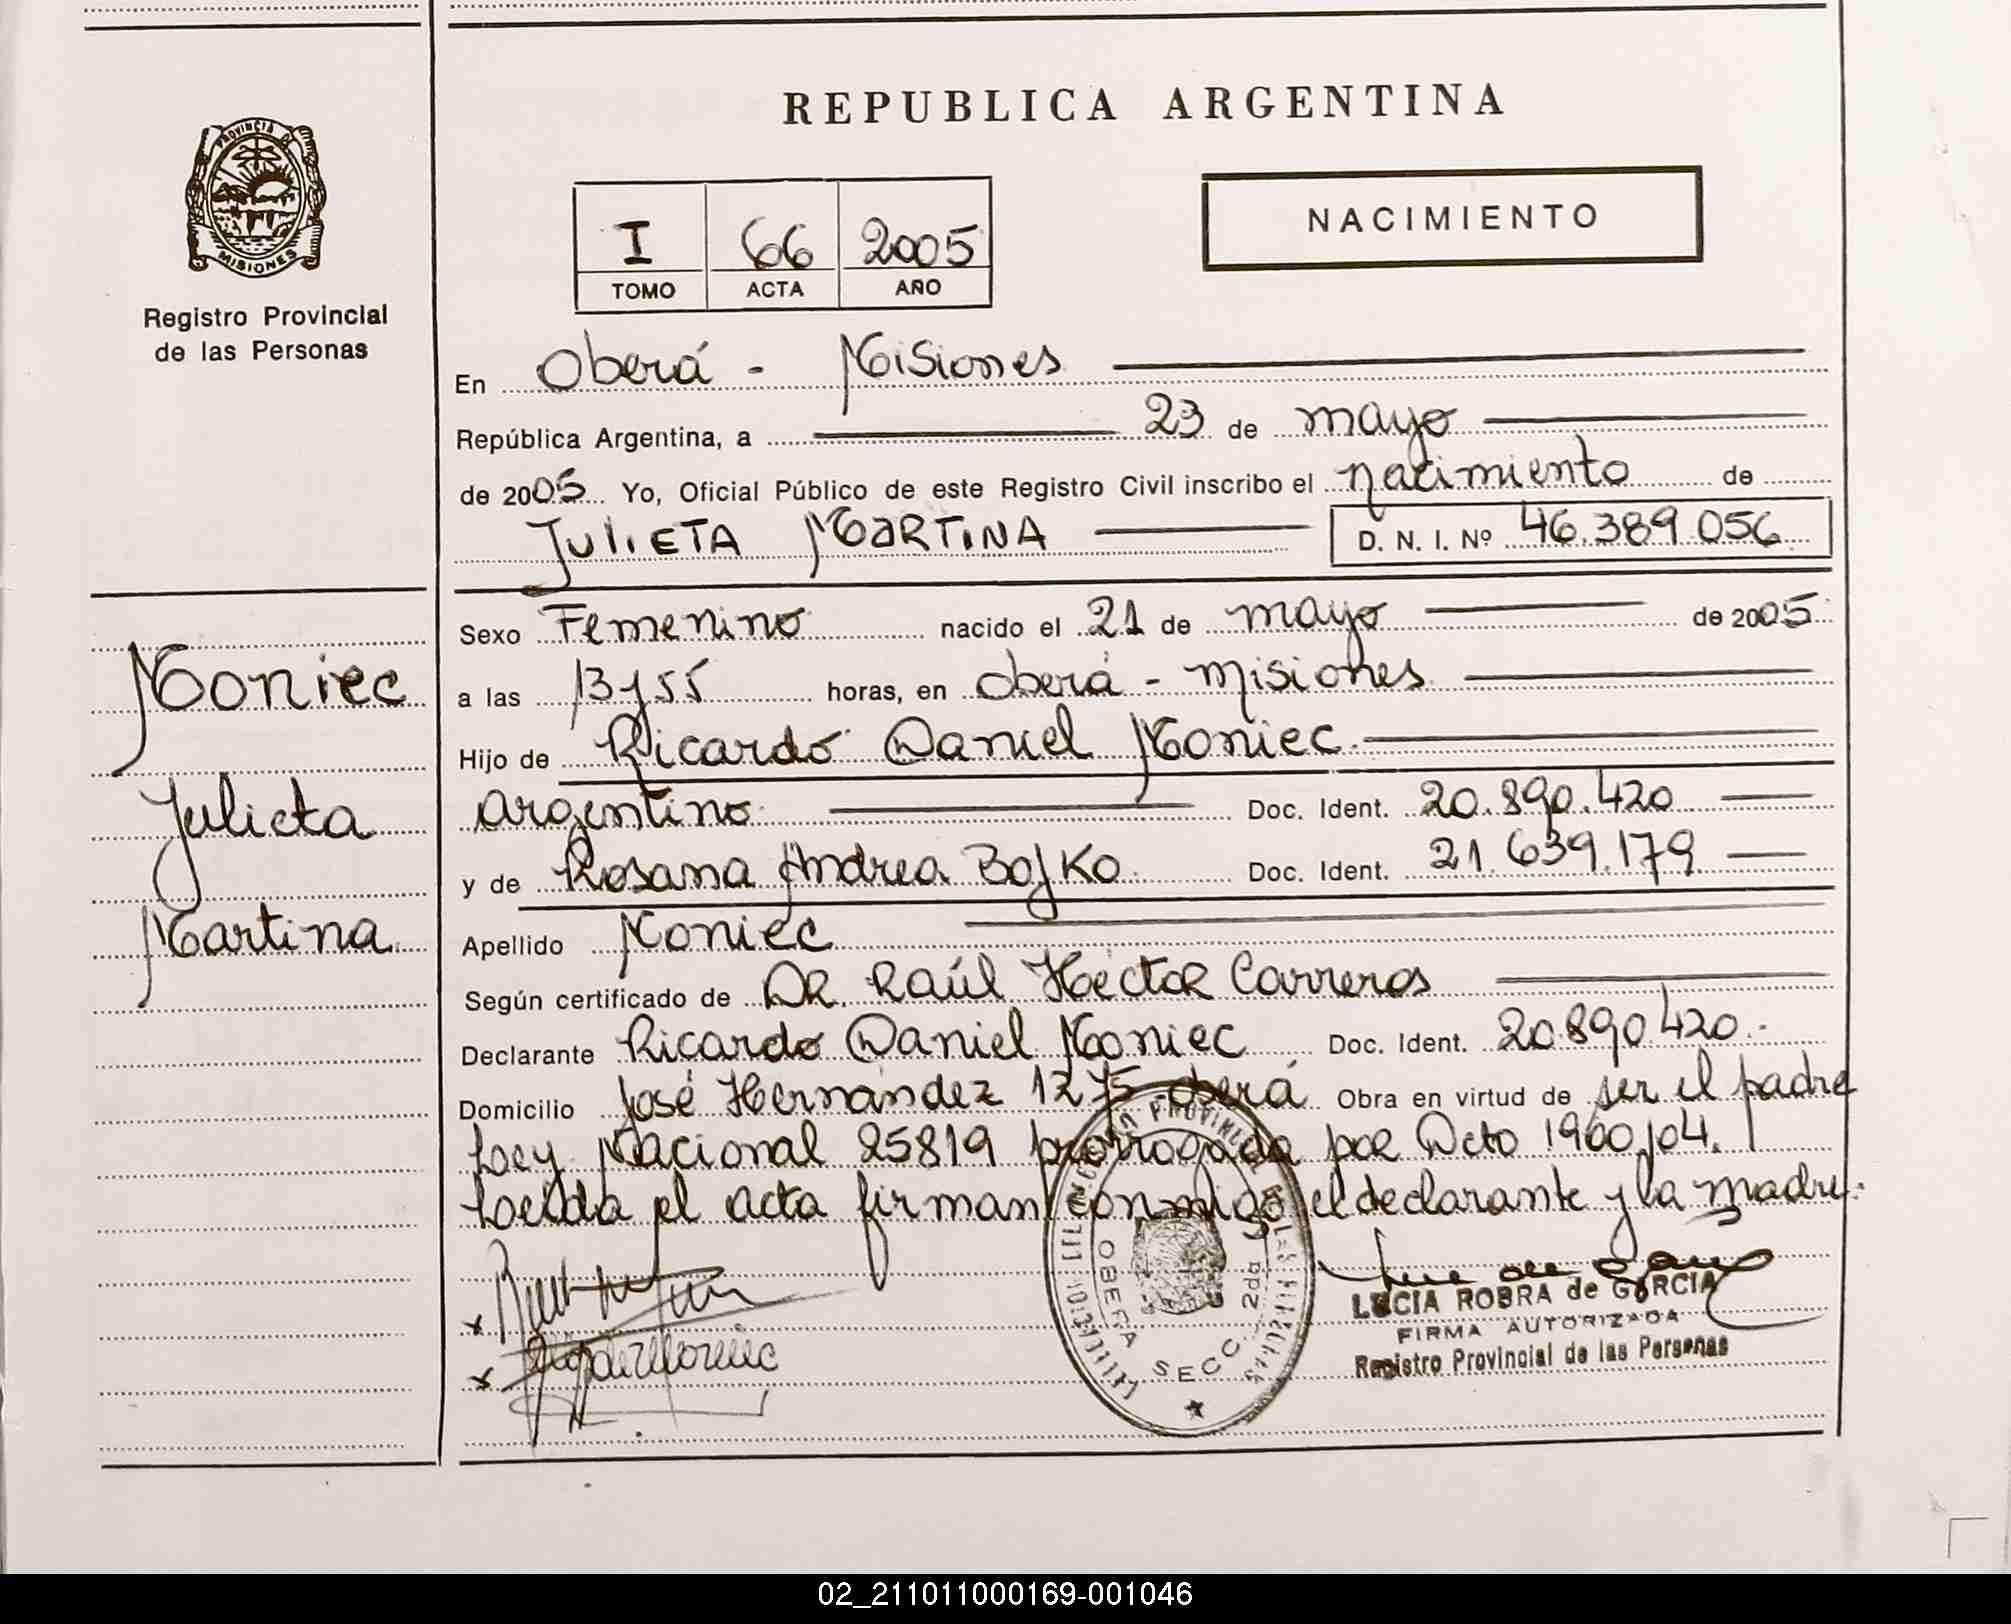 REPUBLICA ARGENTINA
PROVINCIA DE
MISIONES
Registro Provincial
de las Personas
NACIMIENTO
I 66 2005
TOMO ACTA AÑO
En Oberá - Misiones
República Argentina, a 23 de mayo
de 2005 Yo, Oficial Público de este Registro Civil inscribo el nacimiento de
JULIETA MARTINA D. N. I. Nº 46.389.056
Sexo Femenino nacido el 21 de mayo de 2005
a las 13 y 55 horas, en Oberá - Misiones
Hijo de Ricardo Daniel Moniec
argentino Doc. Ident. 20.890.420
y de Rosana Andrea BOJKO Doc. Ident. 21.639.179
Apellido Moniec
Según certificado de DR. Raúl Héctor Carreros
Declarante Ricardo Daniel Moniec Doc. Ident. 20.890420.-
Domicilio José Hernández 1275 Oberá Obra en virtud de ser el padre
Ley Nacional 25819 prorrogada por Dcto 1960/04.
Leída el acta firman conmigo el declarante y la madre.
Moniec
Julieta
Martina
OBERA SECC. 2da
LUCIA ROBRA de GARCIA
FIRMA AUTORIZADA
Registro Provincial de las Personas
02_211011000169-001046